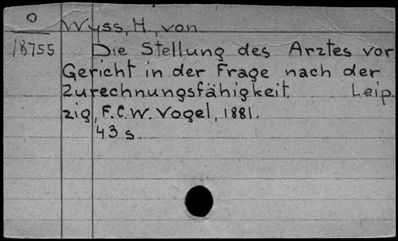 O
18755
Wyss, H, von
Die Stellung des Arztes vor
Gericht in der Frage nach der
Zurechnungsfähigkeit. Leip.
zig, F.C.W. Vogel, 1881.
43 s.